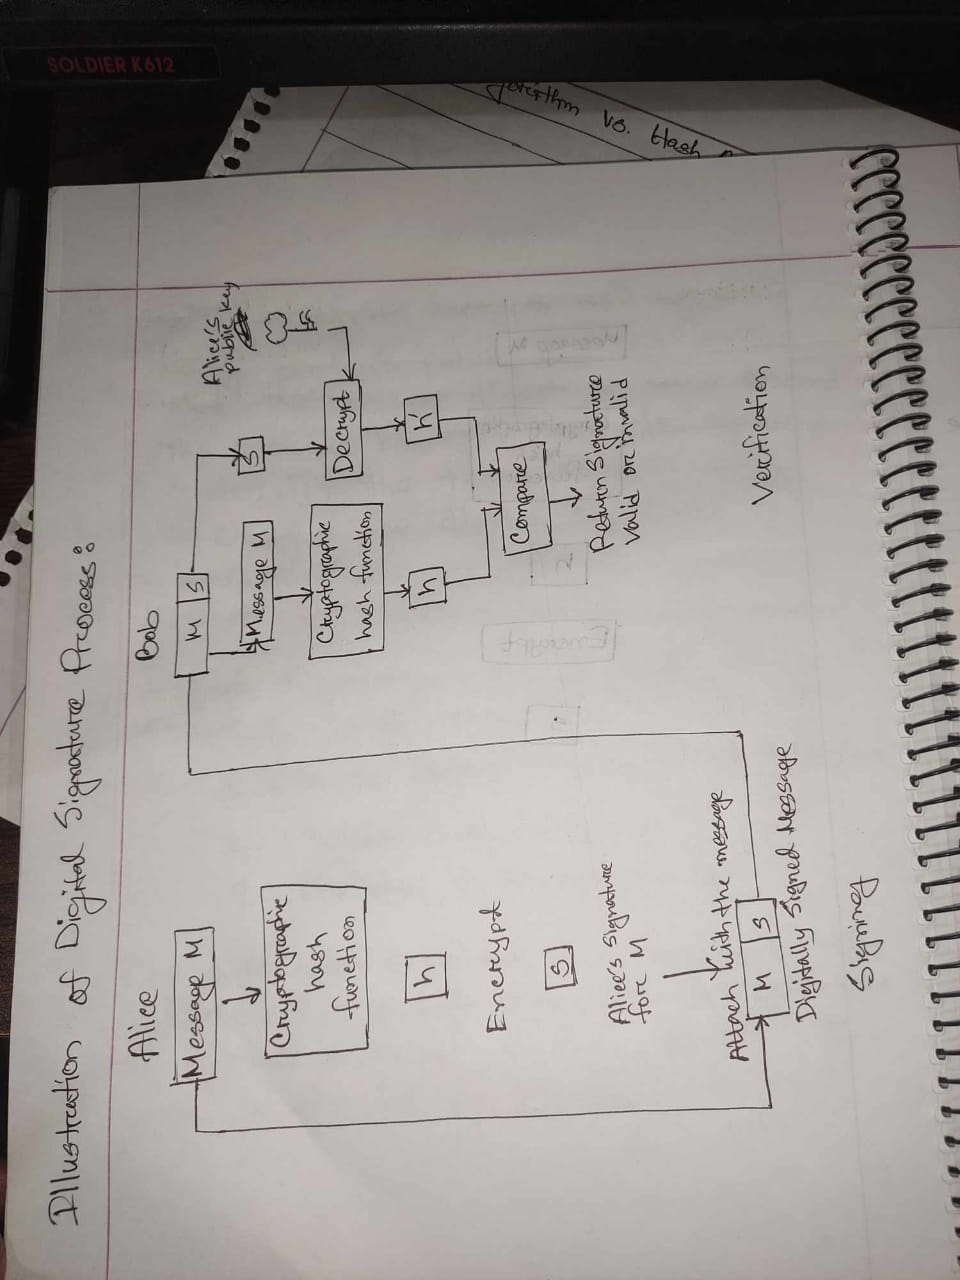 SOLDIER K612
vs. Hash
Illustration of Digital Signature Process:
Alice
Message M
Cryptographic
hash
function
h
Encrypt
S
Alice's Signature
for M
Attach with the message
M S
Digitally Signed Message
Signing
Bob
M S
Message M
Cryptographic
hash function
h
S
Alice's
public key
Decrypt
h'
Compare
Return Signature
valid or invalid
Verification